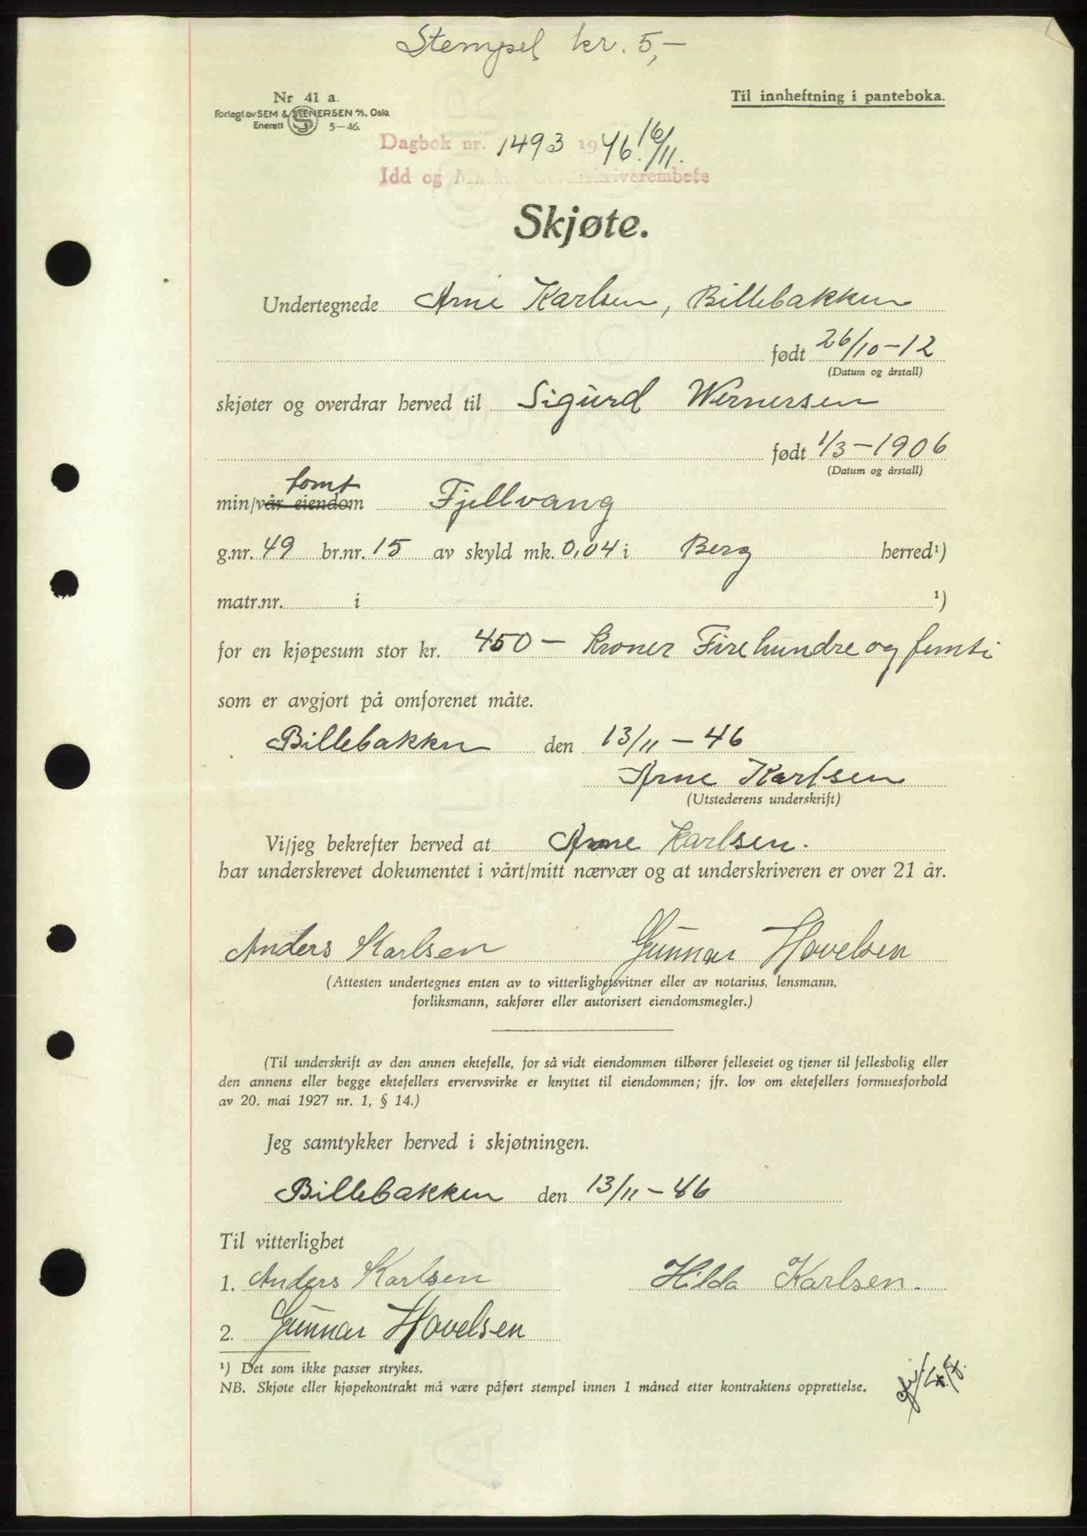 Stempel kr. 5,-
Nr 41 a.
Forlagt av SEM & STENERSEN A/S, Oslo
Enerett 5-46.
Til innheftning i panteboka.
Dagbok nr. 1493 1946 16/11.
Idd og Marker sorenskriverembete
Skjøte.
Undertegnede Arne Karlsen, Billebakken
født 26/10-12
(Datum og årstall)
skjøter og overdrar herved til Sigurd Wernersen
født 1/3-1906
(Datum og årstall)
tomt
min/vår eiendom Fjellvang
g.nr. 49 br.nr. 15 av skyld mk. 0,04 i Berg herred¹)
matr.nr. i ¹)
for en kjøpesum stor kr. 450 — kroner Firehundre og femti
som er avgjort på omforenet måte.
Billebakken den 13/11-46
Arne Karlsen
(Utstederens underskrift)
Vi/jeg bekrefter herved at Arne Karlsen.
har underskrevet dokumentet i vårt/mitt nærvær og at underskriveren er over 21 år.
Anders Karlsen Gunnar Hovelsen
(Attesten undertegnes enten av to vitterlighetsvitner eller av notarius, lensmann,
forliksmann, sakfører eller autorisert eiendomsmegler.)
(Til underskrift av den annen ektefelle, for så vidt eiendommen tilhører felleseiet og tjener til fellesbolig eller
den annens eller begge ektefellers ervervsvirke er knyttet til eiendommen; jfr. lov om ektefellers formuesforhold
av 20. mai 1927 nr. 1, § 14.)
Jeg samtykker herved i skjøtningen.
Billebakken den 13/11-46
Til vitterlighet
1. Anders Karlsen Hilda Karlsen.
2. Gunnar Hovelsen
¹) Det som ikke passer strykes.
NB. Skjøte eller kjøpekontrakt må være påført stempel innen 1 måned etter kontraktens opprettelse.